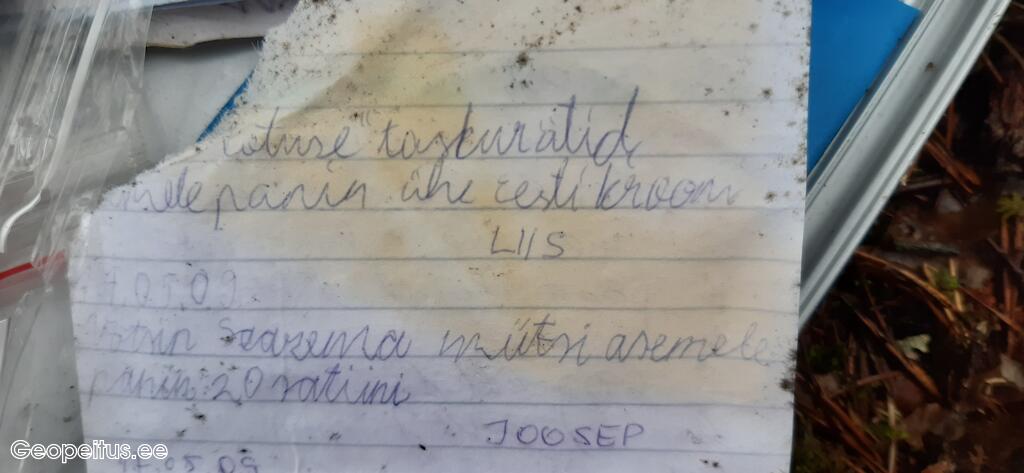 taskurätid,
panin ühe eesti krooni
LIIS
17.05.09
Saarema mütsi asemele
panin 20 satiini
JOOSEP
17.05.09
Geopeitus.ee